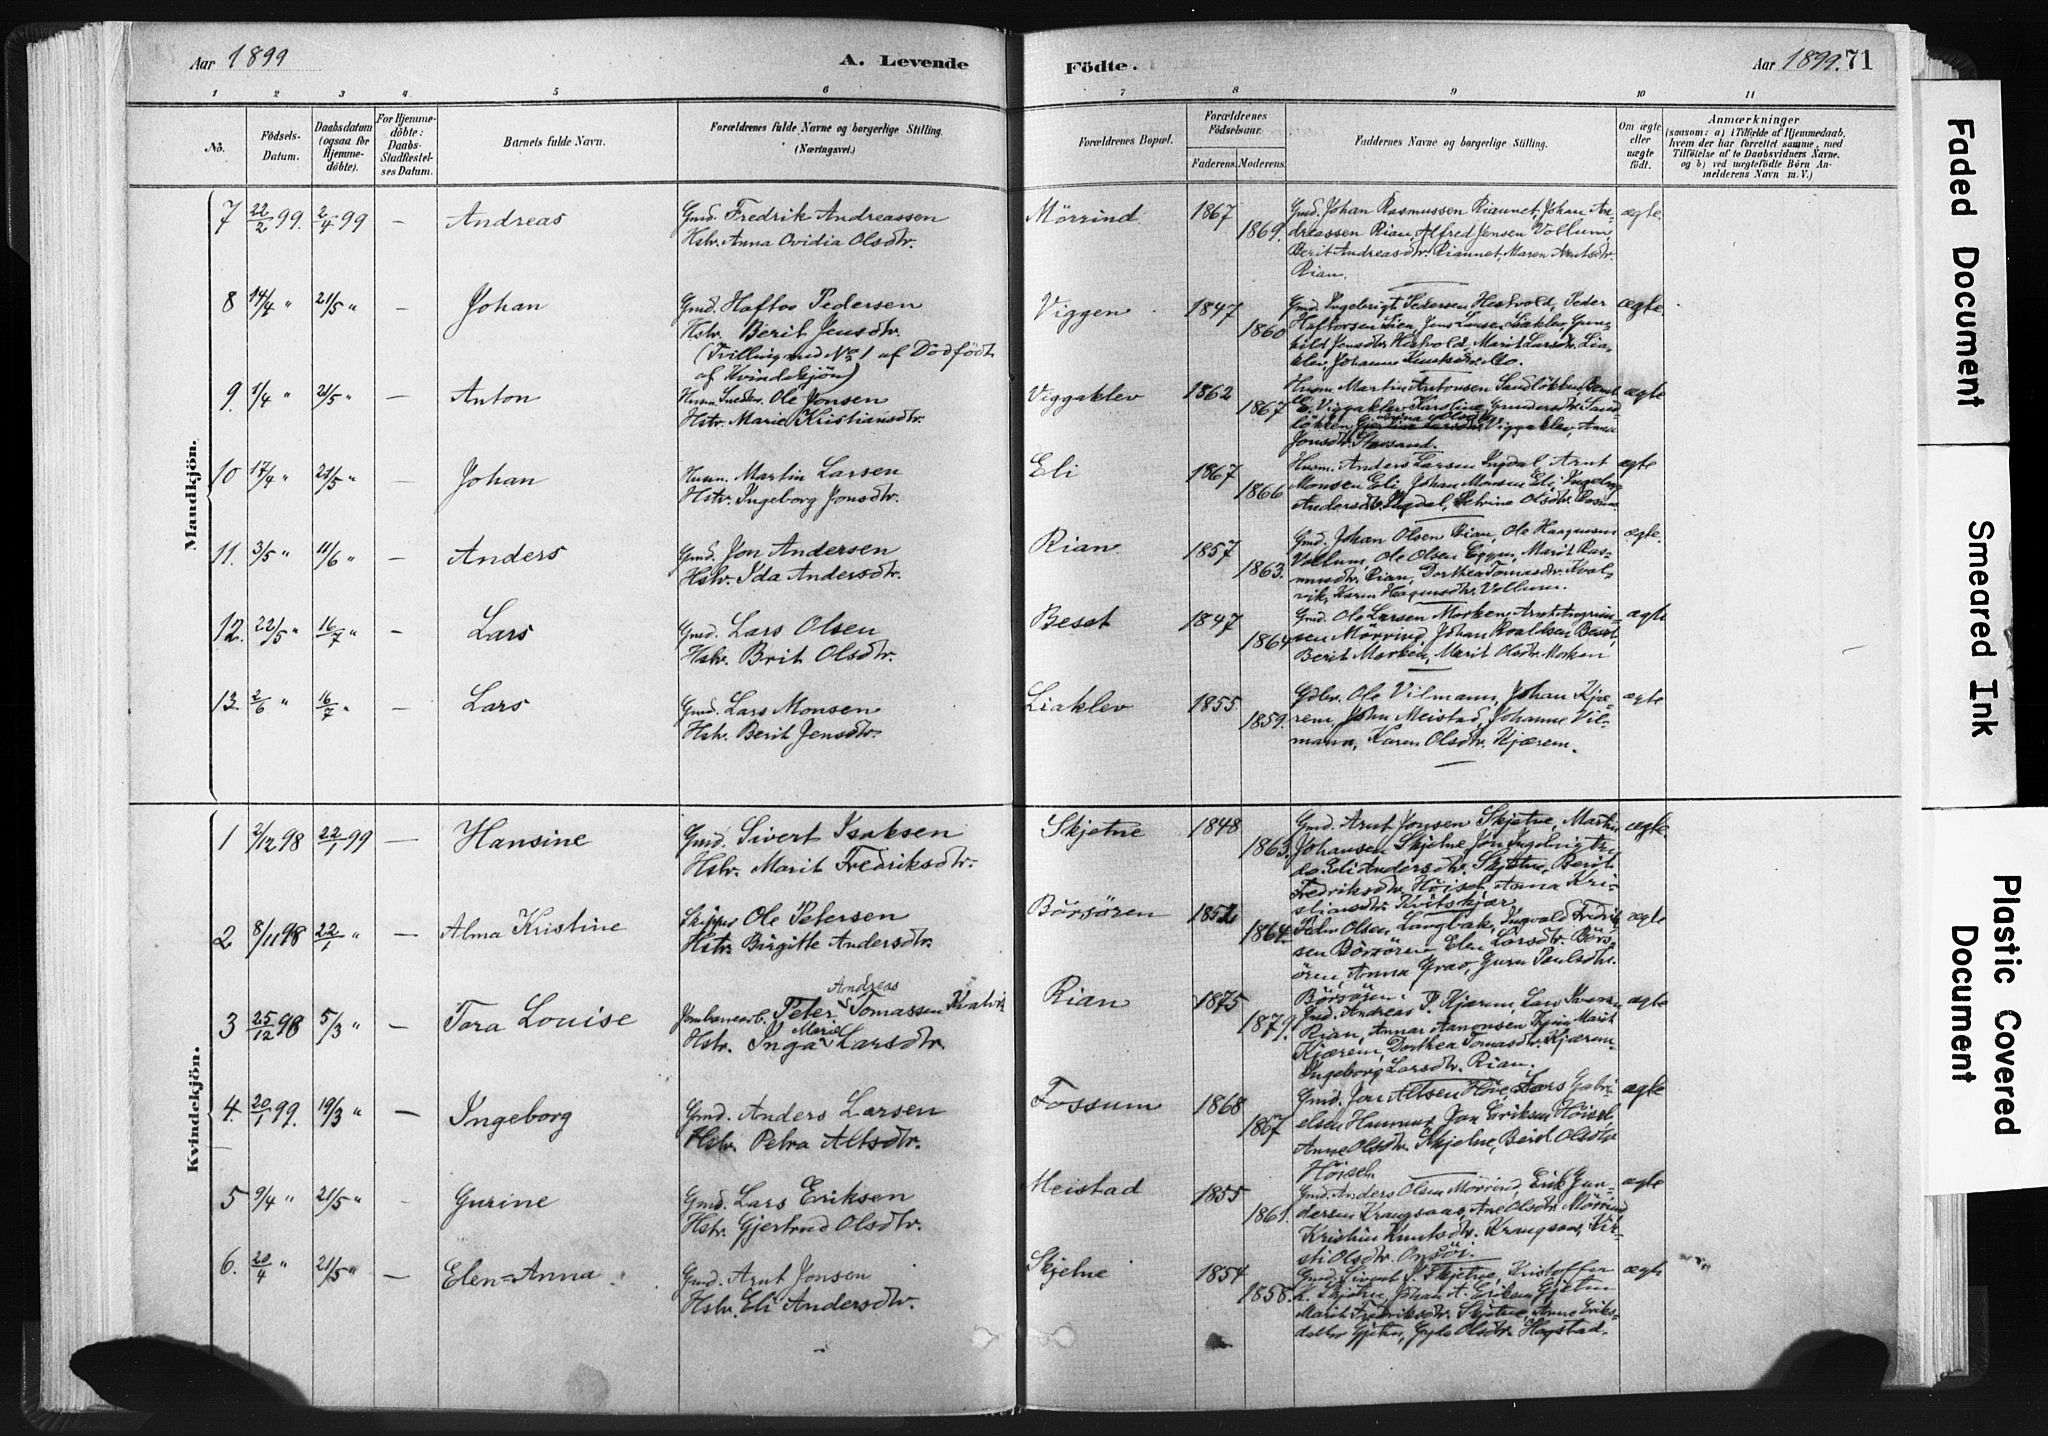 Aar 1899
A. Levende
Födte.
Aar 1899. 71
1 2 3 4 5 6 7 8 9 10 11
No.
Födsels-
Datum.
Daabsdatum
(ogsaa for
Hjemme-
döbte).
For Hjemme-
döbte:
Daabs-
Stadfæstel-
ses Datum.
Barnets fulde Navn.
Forældrenes fulde Navne og borgerlige Stilling.
(Næringsvei.)
Forældrenes Bopæl.
Forældrenes
Födselsaar.
Faderens. Moderens.
Faddernes Navne og borgerlige Stilling.
Om ægte
eller
uægte
födt.
Anmærkninger
(saasom: a) i Tilfælde af Hjemmedaab,
hvem der har forrettet samme, med
Tilföielse af to Daabsvidners Navne.
og b) ved uægtefödte Börn An-
melderens Navn m. V.)
Mandkjön.
7 22/2 99. 2/4 99 — Andreas
Gmd. Fredrik Andreassen
Hstr. Anna Ovidia Olsdtr.
Mörrind 1867 1869.
Gmd. Johan Rasmussen Riannet, Johan An-
dreassen Rian, Alfred Jensen Vollum
Berit Andreasdtr. Riannet, Maren Arntsdtr.
Rian.
ægte
8 14/4 " 21/5 " — Johan
Gmd. Haftor Pedersen
Hstr. Berit Jensdtr.
(Tvilling med No 1 af Dödfödt
af Kvindekjön)
Viggen 1847 1860
Gmd. Ingebrigt Pedersen Hestvold, Peder
Haftorsen Lien, Jens Larsen Liaklev, Gun-
hild Jensdtr. Hestvold, Marit Larsdtr. Lia-
klev, Johanna Knutsdtr. Mo.
ægte
9. 1/4 " 21/5 " — Anton
Husm. Snedker Ole Jonsen
Hstr. Marie Kristiansdtr.
Viggaklev 1862 1867
Husm. Martin Antonsen Sandlökken, Bernt
E. Viggaklev, Karoline Gundersdtr. Sand-
lökken, Olsdtr. Viggaklev, Anna
Jonsdtr. Storsand.
ægte
10 17/4 " 21/5 " — Johan
Husm. Martin Larsen
Hstr. Ingeborg Jonsdtr.
Eli 1867 1866
Husm. Anders Larsen Ingdal, Arnt
Monsen Eli, Johan Monsen Eli, Ingeborg
Andersdtr. Ingdal, Olsdtr.
ægte
11. 3/5 " 11/6 " — Anders
Gmd. Jon Andersen
Hstr. Ida Andersdtr.
Rian 1857 1863.
Gmd. Johan Olsen Rian, Ole Haagensen
Vollum, Ole Olsen Eggen, Marit Ras-
musdtr. Rian, Dorthea Tomasdtr. Kval-
vik, Karen Haagensdtr. Vollum.
ægte.
12. 22/5 " 16/7 " — Lars
Gmd. Lars Olsen
Hstr. Brit Olsdtr.
Beset 1847 1864
Gmd. Ole Larsen Morken, Arnt Angrim-
sen Mörrind, Johan Roaldsen Beset,
Berit Morken, Marit Olsdtr. Morken
ægte
13. 2/6 " 16/7 " — Lars
Gmd. Lars Monsen
Hstr. Berit Jensdtr.
Liaklev 1855 1859.
Gdbr. Ole Vilmann, Johan Kjæ-
rem, John Meistad, Johanne Vil-
mann, Karen Olsdtr. Kjærem.
ægte
Kvindekjön.
1 2/12 98 22/1 99 — Hansine
Gmd. Sivert Isaksen
Hstr. Marit Fredriksdtr.
Skjetne 1848 1863.
Gmd. Arnt Jonsen Skjetne, Martin
Johansen Skjetne, Jon Ingebrigtsen
do. Eli Andersdtr. Skjetne, Berit
Fredriksdtr. Höiset, Anna Kri-
stiansdtr. Kvitskjær
ægte
2 8/11 98 22/1 " — Alma Kristine
Skipper Ole Petersen
Hstr. Birgitte Andersdtr.
Börsören 1852 1864.
Peder Olsen Langbak, Ingvald Fredrik-
sen Börsören, Elen Larsdtr. Börs-
ören, Anna Grav, Guru Paulsdtr.
Börsören.
ægte
3 25/12 98 5/3 " — Tora Louise
Jernbanearb. Peter Andreas Tomassen Kvalvik
Hstr. Inga Marie Larsdtr.
Rian 1875 1879.
Gmd. Andreas P. Kjærem, Lars
Rian, Annar Aanonsen Marit
Kjærem, Dorthea Tomasdtr. Kjærem
Ingeborg Larsdtr. Rian.
ægte
4. 20/1 99. 19/3 " — Ingeborg
Gmd. Anders Larsen
Hstr. Petra Altsdtr.
Fossum 1868 1867
Gmd. Jon Altsen Höve, Lars Gabri-
elsen Hammer, Jon Eriksen Höiset,
Anne Olsdtr. Skjetne, Berit Olsdtr
Höiset.
ægte
5 9/4 " 21/5 " — Gurine
Gmd. Lars Eriksen
Hstr. Gjertrud Olsdtr.
Meistad 1855 1861.
Gmd. Anders Olsen Mörrind, Erik Gun-
dersen Krangsaas, Ane Olsdtr. Mörrind,
Kristin Knutsdtr. Krangsaas, Kir-
sti Olsdtr. Onsöi.
ægte
6. 20/4 " 21/5 " — Elen=Anna
Gmd. Arnt Jonsen
Hstr. Eli Andersdtr.
Skjetne 1854 1858.
Gmd. Sivert I. Skjetne, Kristoffer
K. Skjetne, Johan A. Eriksen Gjeten
Marit Fredriksdtr. Skjetne, Anne Eriks-
datter Gjeten, Gyda Olsdtr. Hogstad.
ægte
Faded Document
Smeared Ink
Plastic Covered
Document